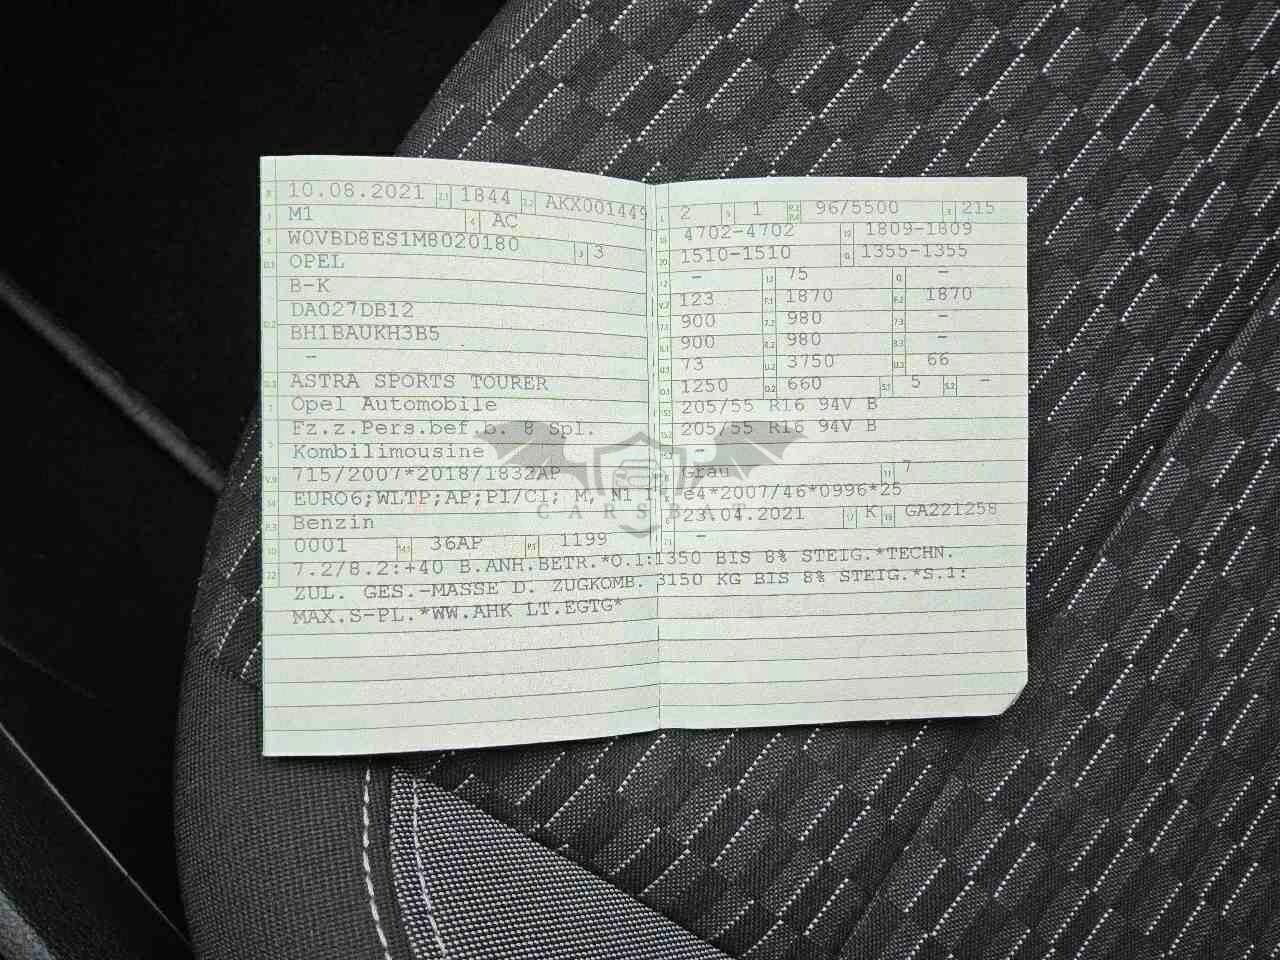 B 10.08.2021 2.1 1844 2.2 AKX001449
J M1 4 AC
E W0VBD8ES1M8020180 3 3
D.1 OPEL
B-K
DA027DB12
D.2 BH1BAUKH3B5
-
D.3 ASTRA SPORTS TOURER
2 Opel Automobile
Fz.z.Pers.bef.b. 8 Spl.
5 Kombilimousine
V.9 715/2007*2018/1832AP
14 EURO6;WLTP;AP;PI/CI; M, N1 I
P.3 Benzin
10 0001 14.1 36AP P.1 1199
22 7.2/8.2:+40 B.ANH.BETR.*O.1:1350 BIS 8% STEIG.*TECHN.
ZUL. GES.-MASSE D. ZUGKOMB. 3150 KG BIS 8% STEIG.*S.1:
MAX.S-PL.*WW.AHK LT.EGTG*
L 2 9 1 P.2 P.4 96/5500 T 215
18 4702-4702 19 1809-1809
20 1510-1510 G 1355-1355
12 - 13 75 Q -
V.7 123 F.1 1870 F.2 1870
7.1 900 7.2 980 7.3 -
8.1 900 8.2 980 8.3 -
U.1 73 U.2 3750 U.3 66
O.1 1250 O.2 660 S.1 5 S.2 -
15.1 205/55 R16 94V B
15.2 205/55 R16 94V B
15.3 -
R Grau 11 7
K e4*2007/46*0996*25
6 23.04.2021 17 K 16 GA221258
21 -
CARSBAT